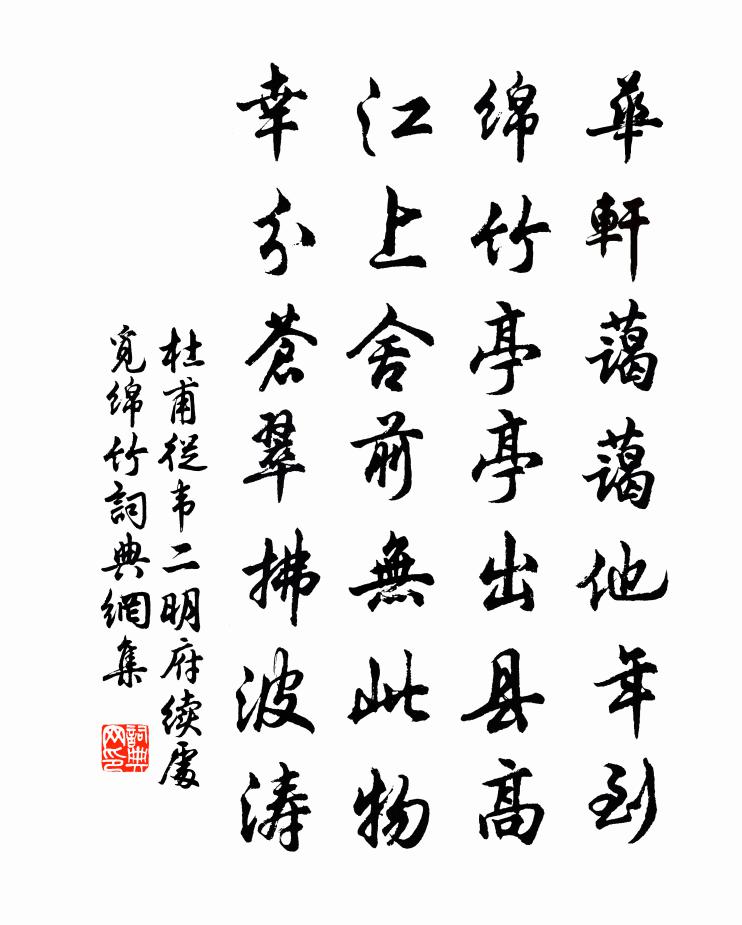 華軒藹藹他年到
綿竹亭亭出县高
江上舍前無此物
幸分蒼翠拂波濤
杜甫從韦二明府續處
覓綿竹詞典網集
詞典
网印